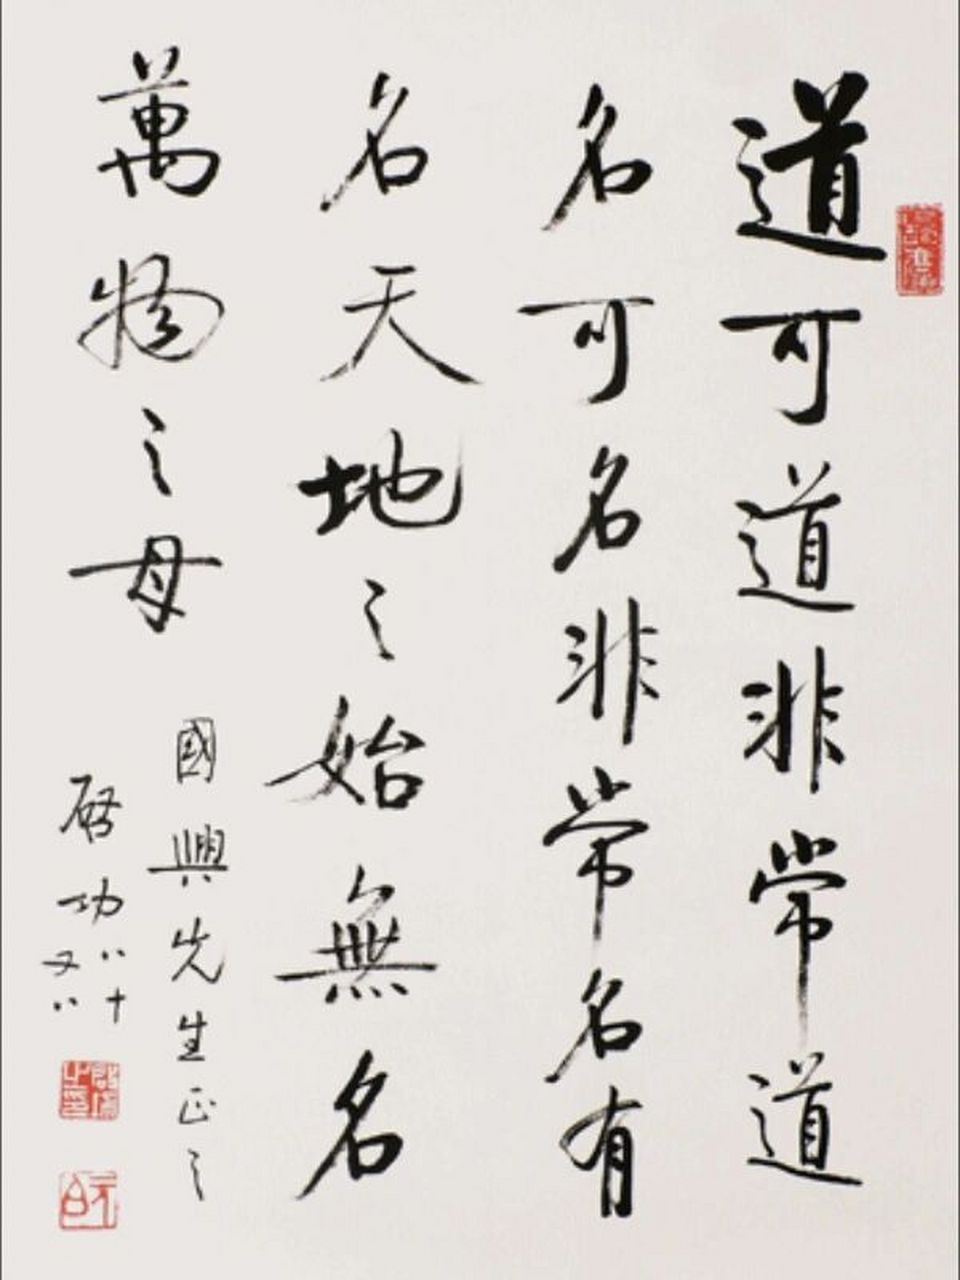 道可道非常道
名可名非常名有
名天地之始無名
萬物之母
國興先生正之
啓功八十
又八
啓功之印
元白